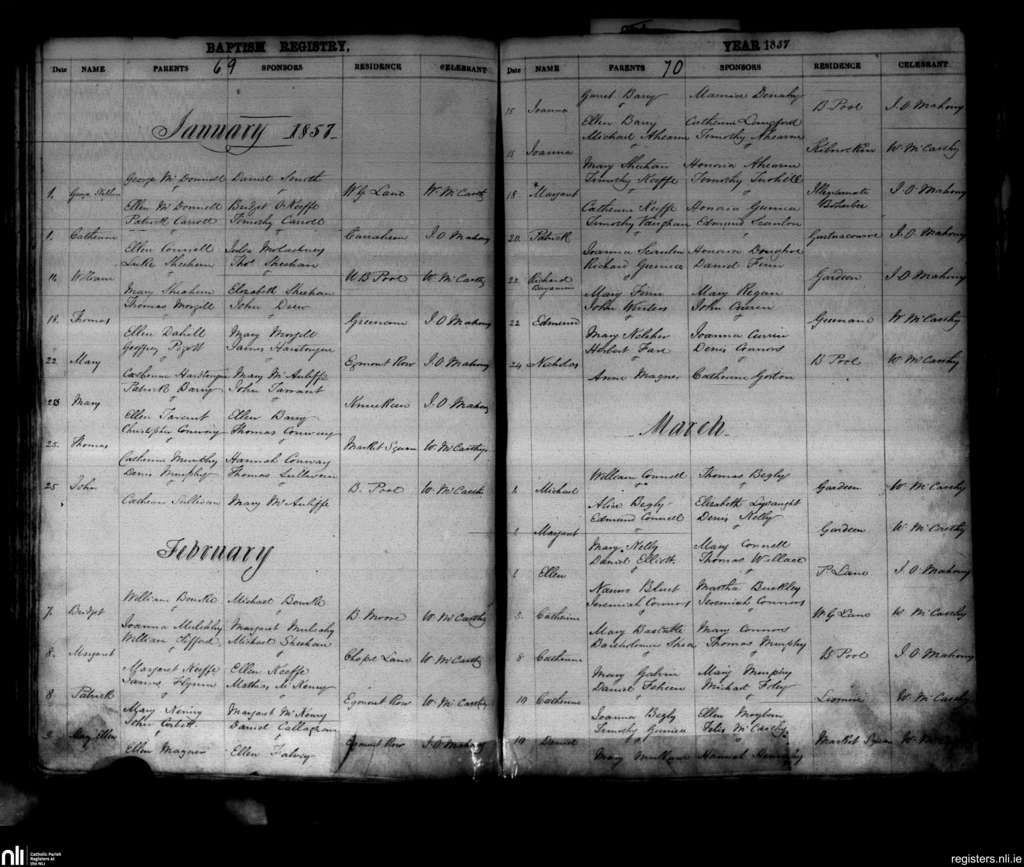 BAPTISM REGISTRY,
Date NAME PARENTS 69 SPONSORS RESIDENCE CELEBRANT
January 1857
George McDonnell Daniel
1. George W G Lane W McCarthy
Ellen McDonnell Bridget O'Keeffe
Patrick Carroll Timothy Carroll
1. Catherine I O Mahony
Ellen Connell Julia
Luke Sheehan Thos Sheehan
William W B Pool W McCarthy
Mary Sheehan Elizabeth Sheehan
Thomas John Drew
18. Thomas Greenane I O Mahony
Ellen Dahill Mary
Geoffrey Pigott James
22 Mary Egmont Row I O Mahony
Catherine Mary McAuliffe
Patrick Barry John Tarrant
23 Mary Knuckeen I O Mahony
Ellen Tarrent Ellen Barry
Christopher Conway Thomas Conway
25. Thomas Market Square W McCarthy
Catherine Murphy Hannah Conway
Denis Murphy Thomas Sullivan
25 John B. Pool W McCarthy
Catherine Sullivan Mary McAuliffe
February
William Bourke Michael Bourke
7. Bridget B Moore W McCarthy
Joanna Margaret Mulcahy
William Clifford Michael Sheehan
8. Margaret Chapel Lane W McCarthy
Margaret Keeffe Ellen Keeffe
James Flynn Mathias McKenny
8 Patrick Egmont Row W McCarthy
Mary Kenny Margaret McKenny
John Daniel Callaghan
Mary Ellen Egmont Row I O Mahony
Ellen Magner Ellen Falvey
YEAR 1857
Date NAME PARENTS 70 SPONSORS RESIDENCE CELEBRANT
Garret Barry Maurice
15 Joanna B Pool I O Mahony
Ellen Barry Catherine Longford
Michael Ahearn Timothy Ahearn
15 Joanna W McCarthy
Mary Sheehan Honoria Ahearn
Timothy Keeffe Timothy Tuohill
18 Margaret I O Mahony
Catherine Keeffe Honoria
Timothy Vaughan Edmund Scanlon
20. Patrick I O Mahony
Joanna Scanlon Honoria
Richard Daniel Finn
22 Richard Benjamin Gardeen I O Mahony
Mary Finn Mary Regan
John Winters John Curren
22 Edmund Greenane W McCarthy
Mary Joanna
Herbert Denis Connors
24 Nicholas B Pool W McCarthy
Anne Magner Catherine
March
William Connell Thomas Begly
1. Michael Gardeen W McCarthy
Alice Begly Elizabeth Lysaught
Edmund Connell Denis Nelly
1 Margaret Gardeen W McCarthy
Mary Nelly Mary Connell
Daniel Elliott Thomas Wallace
1 Ellen P Lane I O Mahony
Martha Buckley
Jeremiah Connors Jeremiah Connors
Catherine W G Lane W McCarthy
Mary Mary Connors
Bartholomew Shea Thomas Murphy
8 Catherine B Pool I O Mahony
Mary Galvin Mary Murphy
Daniel Michael Foley
10 Catherine Lismire W McCarthy
Joanna Begly Ellen Moylan
Timothy McCarthy
10 Daniel Market Square
Mary Hannah
nli
Catholic Parish
Registers at
the NLI
registers.nli.ie